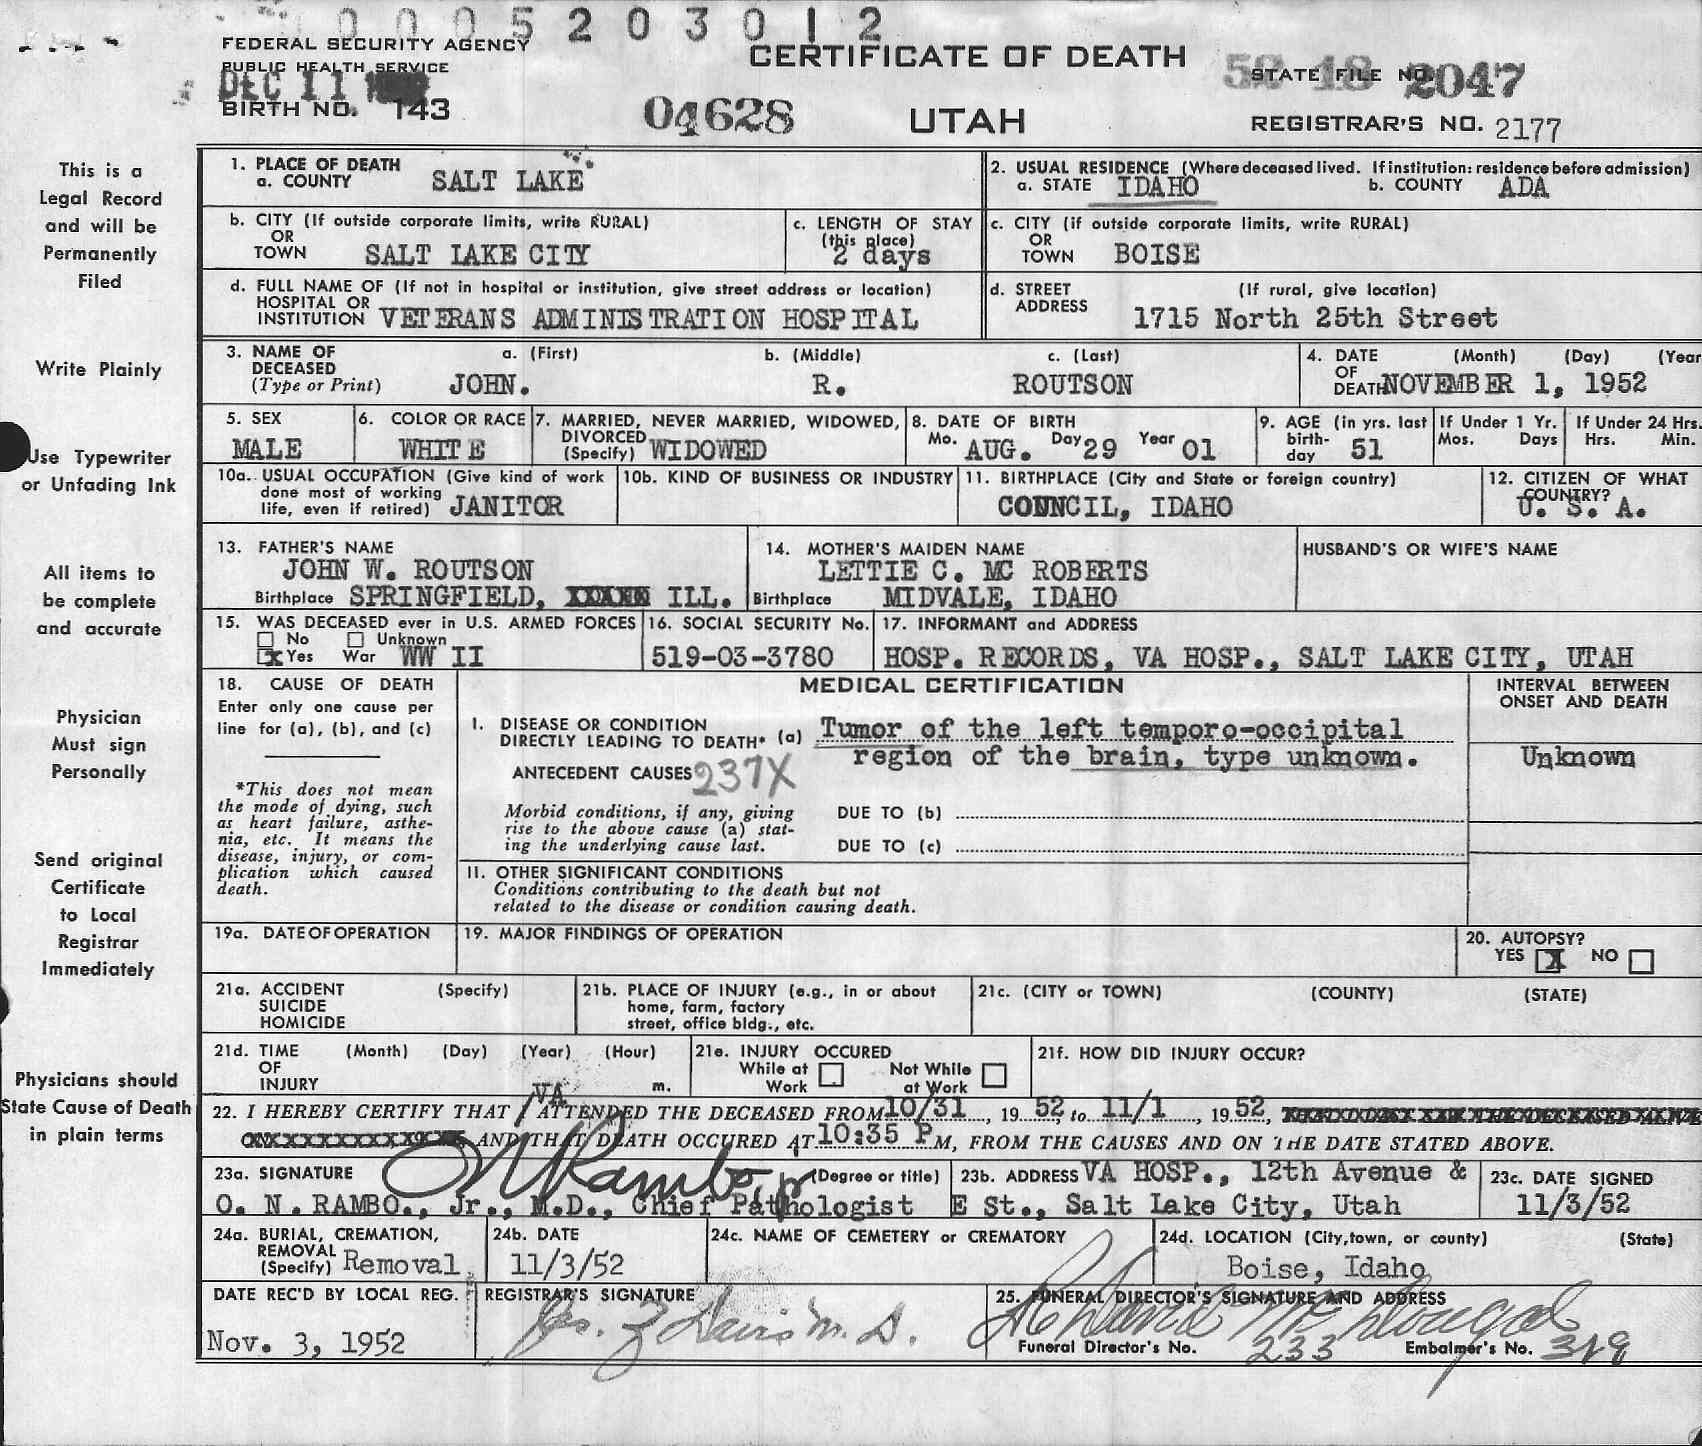 0005203012
FEDERAL SECURITY AGENCY
PUBLIC HEALTH SERVICE
DEC 11
CERTIFICATE OF DEATH
STATE FILE NO. 2047
BIRTH NO. 143
04628
UTAH
REGISTRAR'S NO. 2177
This is a
Legal Record
and will be
Permanently
Filed
Write Plainly
Use Typewriter
or Unfading Ink
All items to
be complete
and accurate
Physician
Must sign
Personally
Send original
Certificate
to Local
Registrar
Immediately
Physicians should
State Cause of Death
in plain terms
1. PLACE OF DEATH
a. COUNTY SALT LAKE
2. USUAL RESIDENCE (Where deceased lived. If institution: residence before admission)
a. STATE IDAHO b. COUNTY ADA
b. CITY (If outside corporate limits, write RURAL)
OR
TOWN SALT LAKE CITY
c. LENGTH OF STAY
(this place)
2 days
c. CITY (if outside corporate limits, write RURAL)
OR
TOWN BOISE
d. FULL NAME OF (If not in hospital or institution, give street address or location)
HOSPITAL OR
INSTITUTION VETERANS ADMINISTRATION HOSPITAL
d. STREET (If rural, give location)
ADDRESS 1715 North 25th Street
3. NAME OF a. (First) b. (Middle) c. (Last)
DECEASED
(Type or Print) JOHN. R. ROUTSON
4. DATE (Month) (Day) (Year
OF
DEATH NOVEMBER 1, 1952
5. SEX
MALE
6. COLOR OR RACE
WHITE
7. MARRIED, NEVER MARRIED, WIDOWED,
DIVORCED
(Specify) WIDOWED
8. DATE OF BIRTH
Mo. AUG. Day 29 Year 01
9. AGE (in yrs. last
birth-
day 51
If Under 1 Yr.
Mos. Days
If Under 24 Hrs.
Hrs. Min.
10a. USUAL OCCUPATION (Give kind of work
done most of working
life, even if retired) JANITOR
10b. KIND OF BUSINESS OR INDUSTRY
11. BIRTHPLACE (City and State or foreign country)
COUNCIL, IDAHO
12. CITIZEN OF WHAT
COUNTRY?
U. S. A.
13. FATHER'S NAME
JOHN W. ROUTSON
Birthplace SPRINGFIELD, ILL.
14. MOTHER'S MAIDEN NAME
LETTIE C. MC ROBERTS
Birthplace MIDVALE, IDAHO
HUSBAND'S OR WIFE'S NAME
15. WAS DECEASED ever in U.S. ARMED FORCES
No Unknown
x Yes War WW II
16. SOCIAL SECURITY No.
519-03-3780
17. INFORMANT and ADDRESS
HOSP. RECORDS, VA HOSP., SALT LAKE CITY, UTAH
18. CAUSE OF DEATH
Enter only one cause per
line for (a), (b), and (c)
*This does not mean
the mode of dying, such
as heart failure, asthe-
nia, etc. It means the
disease, injury, or com-
plication which caused
death.
MEDICAL CERTIFICATION
I. DISEASE OR CONDITION
DIRECTLY LEADING TO DEATH* (a) Tumor of the left temporo-occipital
region of the brain, type unknown.
ANTECEDENT CAUSES 237X
Morbid conditions, if any, giving
rise to the above cause (a) stat-
ing the underlying cause last.
DUE TO (b)
DUE TO (c)
II. OTHER SIGNIFICANT CONDITIONS
Conditions contributing to the death but not
related to the disease or condition causing death.
INTERVAL BETWEEN
ONSET AND DEATH
Unknown
19a. DATE OF OPERATION
19. MAJOR FINDINGS OF OPERATION
20. AUTOPSY?
YES X NO
21a. ACCIDENT (Specify)
SUICIDE
HOMICIDE
21b. PLACE OF INJURY (e.g., in or about
home, farm, factory
street, office bldg., etc.
21c. (CITY or TOWN) (COUNTY) (STATE)
21d. TIME (Month) (Day) (Year) (Hour)
OF
INJURY m.
21e. INJURY OCCURED
While at Work Not While at Work
21f. HOW DID INJURY OCCUR?
VA
22. I HEREBY CERTIFY THAT I ATTENDED THE DECEASED FROM 10/31, 1952, to 11/1, 1952,
AND THAT DEATH OCCURED AT 10:35 P M, FROM THE CAUSES AND ON THE DATE STATED ABOVE.
23a. SIGNATURE ON Rambo, Jr (Degree or title)
O. N. RAMBO., Jr., M.D., Chief Pathologist
23b. ADDRESS VA HOSP., 12th Avenue &
E St., Salt Lake City, Utah
23c. DATE SIGNED
11/3/52
24a. BURIAL, CREMATION,
REMOVAL
(Specify) Removal
24b. DATE
11/3/52
24c. NAME OF CEMETERY or CREMATORY
24d. LOCATION (City, town, or county) (State)
Boise, Idaho
DATE REC'D BY LOCAL REG.
Nov. 3, 1952
REGISTRAR'S SIGNATURE
Davis M. D.
25. FUNERAL DIRECTOR'S SIGNATURE AND ADDRESS
Funeral Director's No. 233 Embalmer's No.